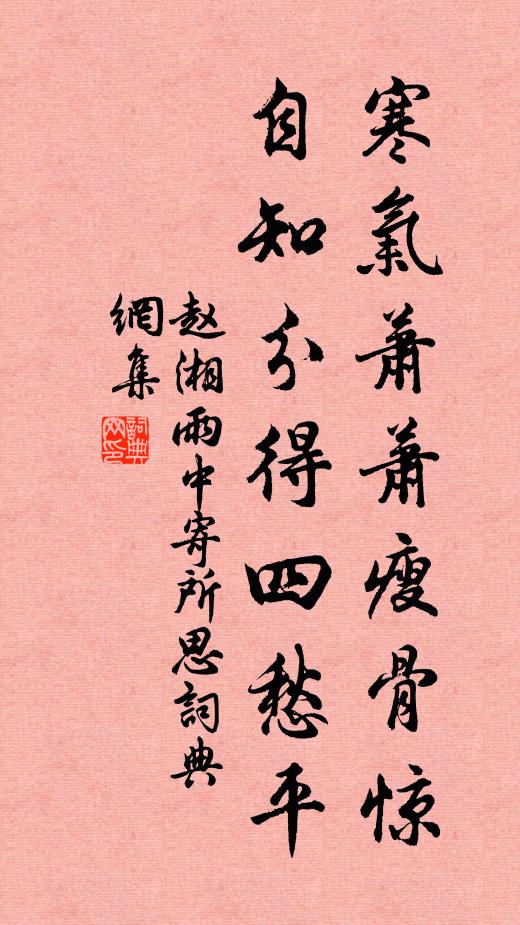 寒氣蕭蕭瘦骨惊
自知分得四愁平
赵湘雨中寄所思詞典
網集
詞典
网印